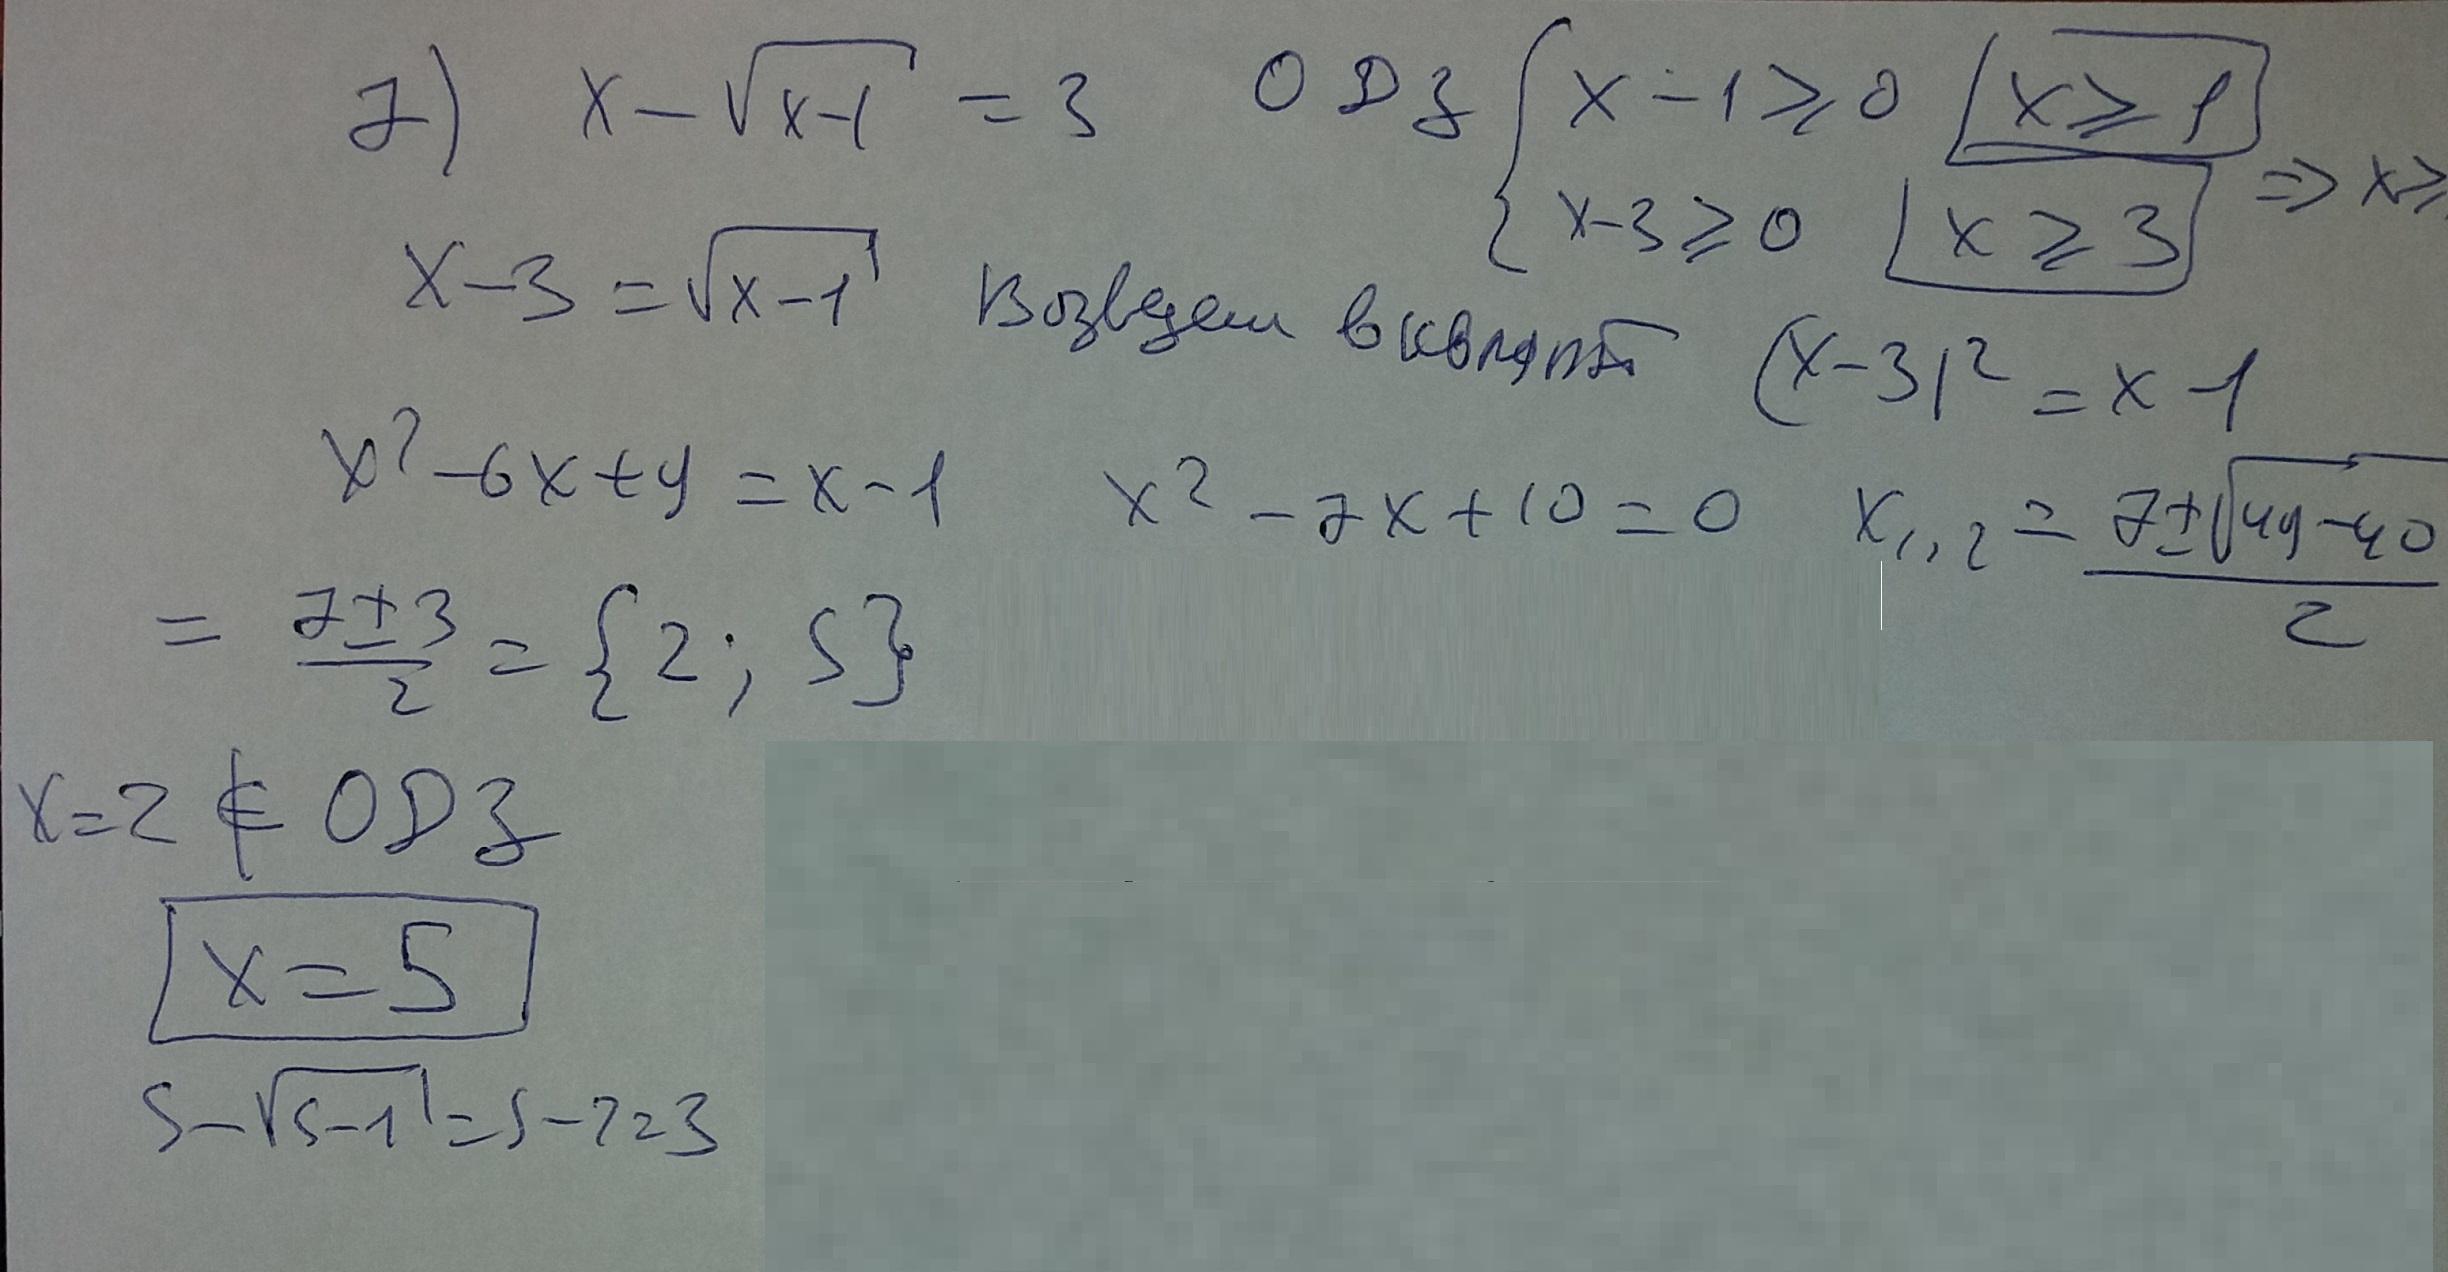 7) x-√x-1 = 3 ОДЗ { x-1⩾0 x⩾1
x-3⩾0 x⩾3 => x⩾
x-3=√x-1 Возведем в квадрат (x-3)²=x-1
x²-6x+9=x-1 x²-7x+10=0 x₁,₂= 7±√49-40 / 2
= 7±3 / 2 = {2; 5}
x=2 ∉ ОДЗ
x=5
5-√5-1=5-2=3